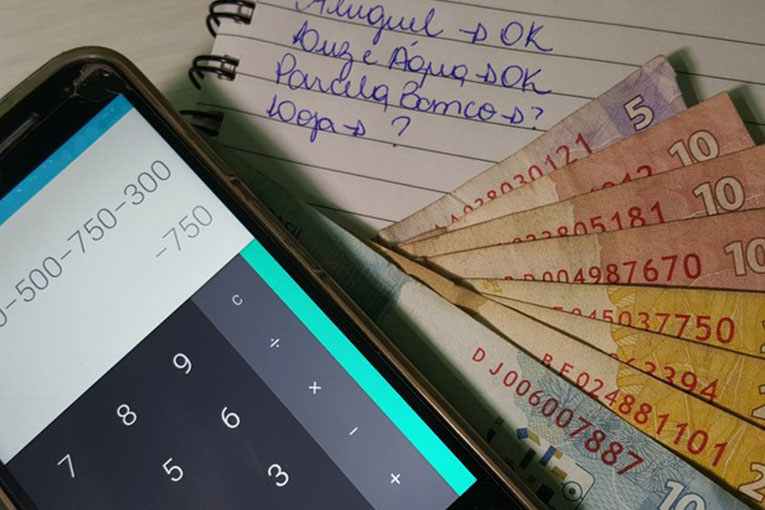 Aluguel → OK
Luz e Água → OK
Parcela Banco → ?
Loja → ?
0-500-750-300
-750
C
÷
×
−
+
9
8 6
7 5 3
5
10
10
10
004987670
45037750
3394
BE024881101
DJ006007887
10
2